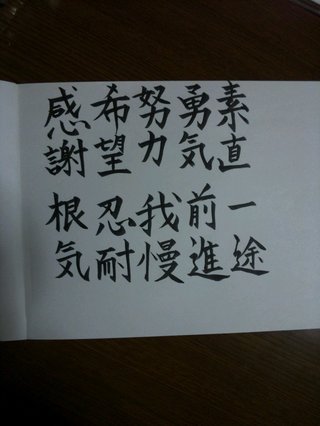 素直
勇気
努力
希望
感謝
一途
前進
我慢
忍耐
根気